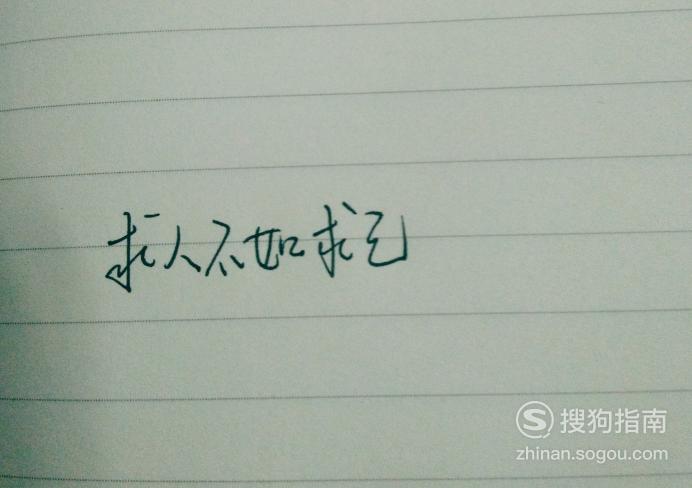 求人不如求己
搜狗指南
zhinan.sogou.com